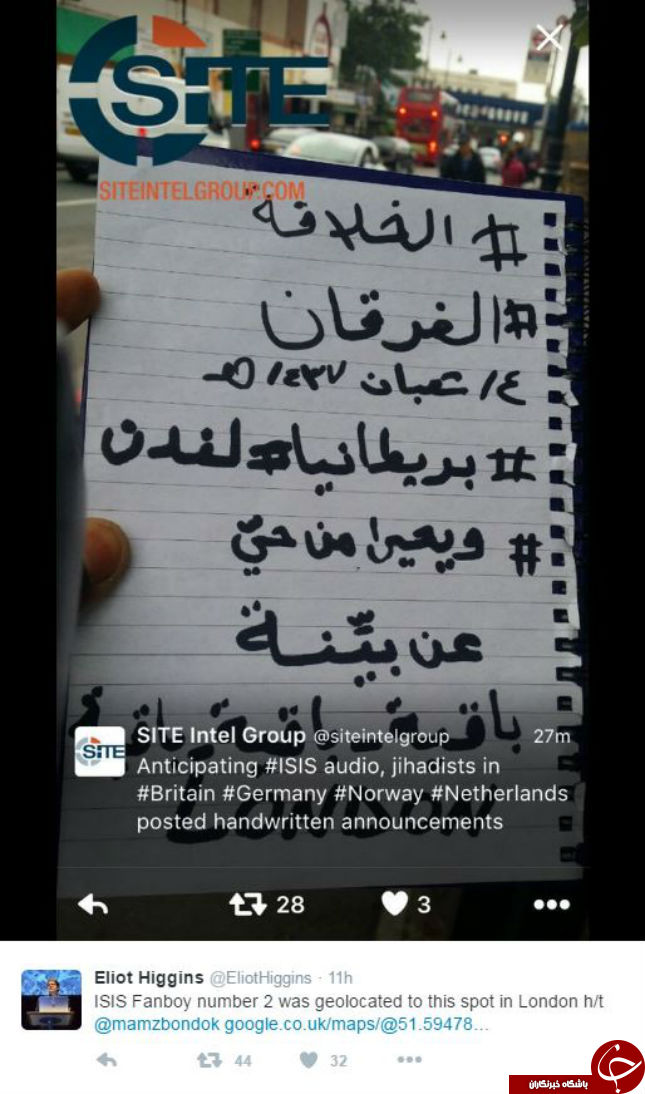 SITE
SITEINTELGROUP.COM
# الخلافة
#الفرقان
١٤ شعبان ١٤٣٧ هـ
# بريطانيا# لندن
# ويحيا من حيّ
عن بيّنة
باقية - باقية - باقية
London
SITE
SITE Intel Group @siteintelgroup 27m
Anticipating #ISIS audio, jihadists in
#Britain #Germany #Norway #Netherlands
posted handwritten announcements
28 3
Eliot Higgins @EliotHiggins · 11h
ISIS Fanboy number 2 was geolocated to this spot in London h/t
@mamzbondok google.co.uk/maps/@51.59478...
44 32
باشگاه خبرنگاران